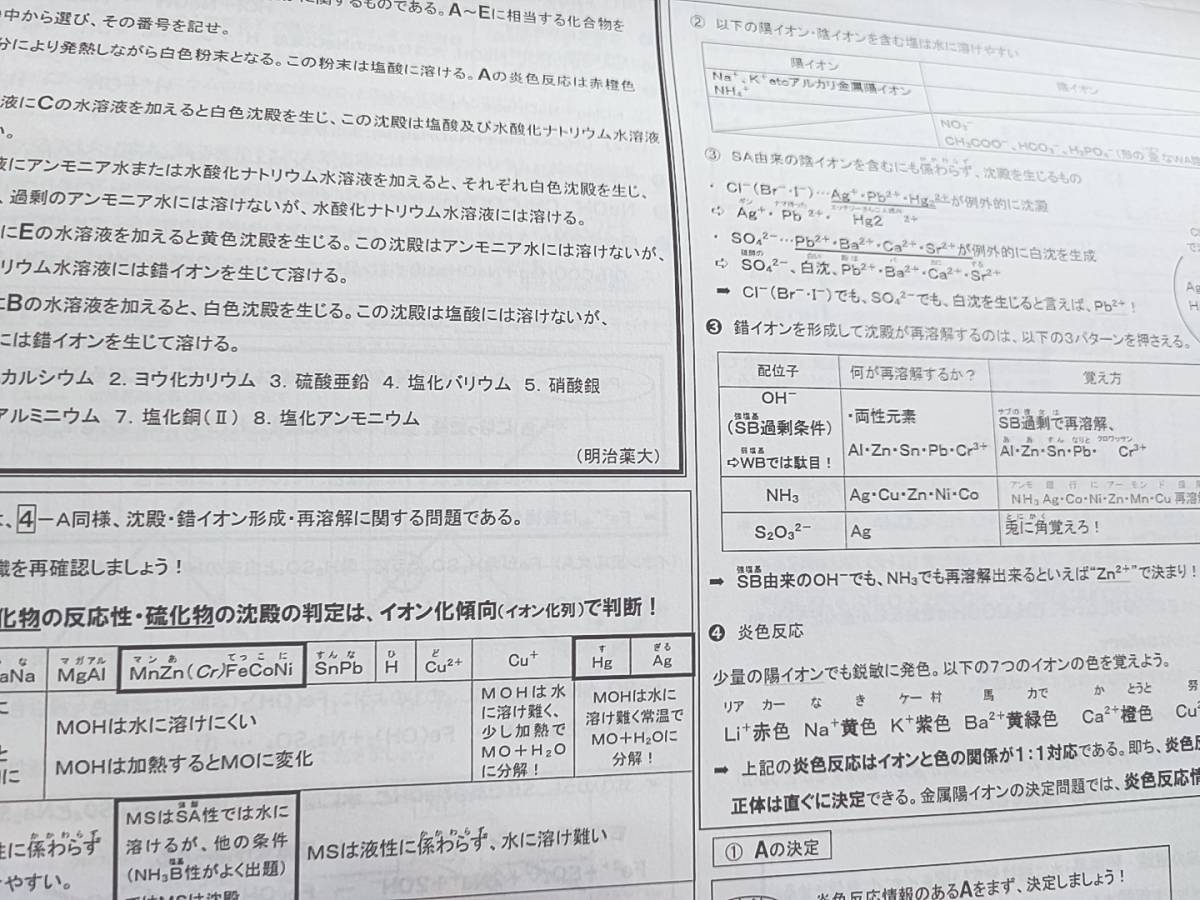 関するものである。A～Eに相当する化合物を
中から選び、その番号を記せ。
分により発熱しながら白色粉末となる。この粉末は塩酸に溶ける。Aの炎色反応は赤橙色
液にCの水溶液を加えると白色沈殿を生じ、この沈殿は塩酸及び水酸化ナトリウム水溶液
い。
液にアンモニア水または水酸化ナトリウム水溶液を加えると、それぞれ白色沈殿を生じ、
、過剰のアンモニア水には溶けないが、水酸化ナトリウム水溶液には溶ける。
にEの水溶液を加えると黄色沈殿を生じる。この沈殿はアンモニア水には溶けないが、
リウム水溶液には錯イオンを生じて溶ける。
にBの水溶液を加えると、白色沈殿を生じる。この沈殿は塩酸には溶けないが、
には錯イオンを生じて溶ける。
カルシウム 2. ヨウ化カリウム 3. 硫酸亜鉛 4. 塩化バリウム 5. 硝酸銀
アルミニウム 7. 塩化銅(Ⅱ) 8. 塩化アンモニウム
(明治薬大)
、4－A同様、沈殿・錯イオン形成・再溶解に関する問題である。
識を再確認しましょう！
化物の反応性・硫化物の沈殿の判定は、イオン化傾向(イオン化列)で判断！
な マガアル マンあ てっこに すんな ひ ど す ぎる
aNa MgAl MnZn(Cr)FeCoNi SnPb H Cu²⁺ Cu⁺ Hg Ag
MOHは水に溶けにくい
MOHは加熱するとMOに変化
MOHは水
に溶け難く、
少し加熱で
MO+H₂O
に分解！
MOHは水に
溶け難く常温で
MO+H₂Oに
分解！
性に係わらず
けやすい。
MSはSA性では水に
溶けるが、他の条件
(NH₃B性がよく出題)
ではMSは沈殿
MSは液性に係わらず、水に溶け難い
② 以下の陽イオン・陰イオンを含む塩は水に溶けやすい
陽イオン 陰イオン
Na⁺、K⁺etcアルカリ金属陽イオン
NH₄⁺
NO₃⁻
CH₃COO⁻、HCO₃⁻、H₂PO₄⁻
③ SA由来の陰イオンを含むにも係わらず、沈殿を生じるもの
・ Cl⁻(Br⁻・I⁻)…Ag⁺・Pb²⁺・Hg₂²⁺が例外的に沈澱
⇨ Ag⁺・Pb²⁺・Hg2²⁺
・ SO₄²⁻…Pb²⁺・Ba²⁺・Ca²⁺・Sr²⁺が例外的に白沈を生成
⇨ SO₄²⁻、白沈、Pb²⁺・Ba²⁺・Ca²⁺・Sr²⁺
➡ Cl⁻(Br⁻・I⁻)でも、SO₄²⁻でも、白沈を生じると言えば、Pb²⁺！
❸ 錯イオンを形成して沈殿が再溶解するのは、以下の3パターンを押さえる。
配位子 何が再溶解するか？ 覚え方
OH⁻
(SB過剰条件)
⇨WBでは駄目！
・両性元素
Al・Zn・Sn・Pb・Cr³⁺
SB過剰で再溶解、
Al・Zn・Sn・Pb・ Cr³⁺
NH₃ Ag・Cu・Zn・Ni・Co NH₃ Ag・Co・Ni・Zn・Mn・Cu 再溶
S₂O₃²⁻ Ag 兎に角覚えろ！
➡ SB由来のOH⁻でも、NH₃でも再溶解出来るといえば“Zn²⁺”で決まり！
❹ 炎色反応
少量の陽イオンでも鋭敏に発色。以下の7つのイオンの色を覚えよう。
リア カー な き ケー 村 馬 力で か とうと 努
Li⁺赤色 Na⁺黄色 K⁺紫色 Ba²⁺黄緑色 Ca²⁺橙色 Cu²
➡ 上記の炎色反応はイオンと色の関係が1：1対応である。即ち、炎色反
正体は直ぐに決定できる。金属陽イオンの決定問題では、炎色反応情
① Aの決定
炎色反応情報のあるAをまず、決定しましょう！